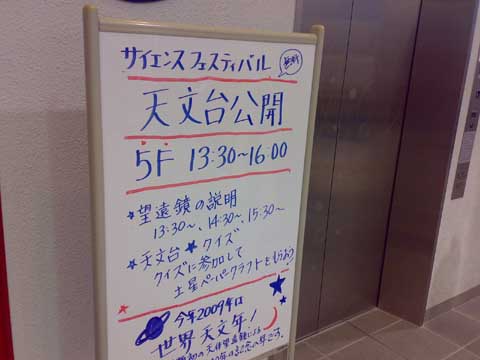 サイエンスフェスティバル 無料
天文台公開
5F 13:30~16:00
★望遠鏡の説明
13:30~、14:30~、15:30~
★天文台★クイズ
クイズに参加して
土星ペーパークラフトをもらおう
今年2009年は
世界天文年!
初の天体望遠鏡による